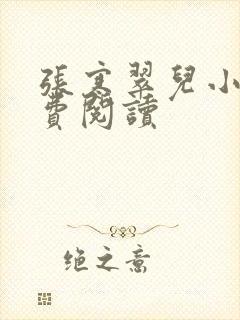 張寒翠兒小
費閱讀
绝之意